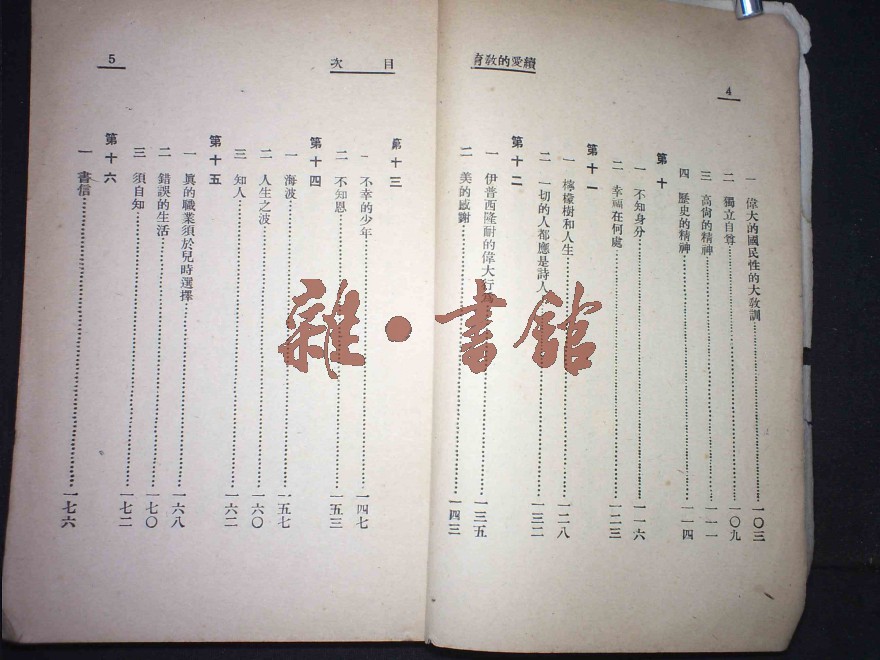 續愛的教育
4
一 偉大的國民性的大教訓 一〇三
二 獨立自尊 一〇九
三 高尙的精神 一一一
四 歷史的精神 一一四
第十
一 不知身分 一一六
二 幸福在何處 一二三
第十一
一 檸檬樹和人生 一二八
二 一切的人都應是詩人 一三二
第十二
一 伊普西隆耐的偉大行 一三五
二 美的感謝 一四三
目次
5
第十三
一 不幸的少年 一四七
二 不知恩 一五三
第十四
一 海波 一五七
二 人生之波 一六〇
三 知人 一六二
第十五
一 眞的職業須於兒時選擇 一六八
二 錯誤的生活 一七〇
三 須自知 一七二
第十六
一 書信 一七六
雜·書館